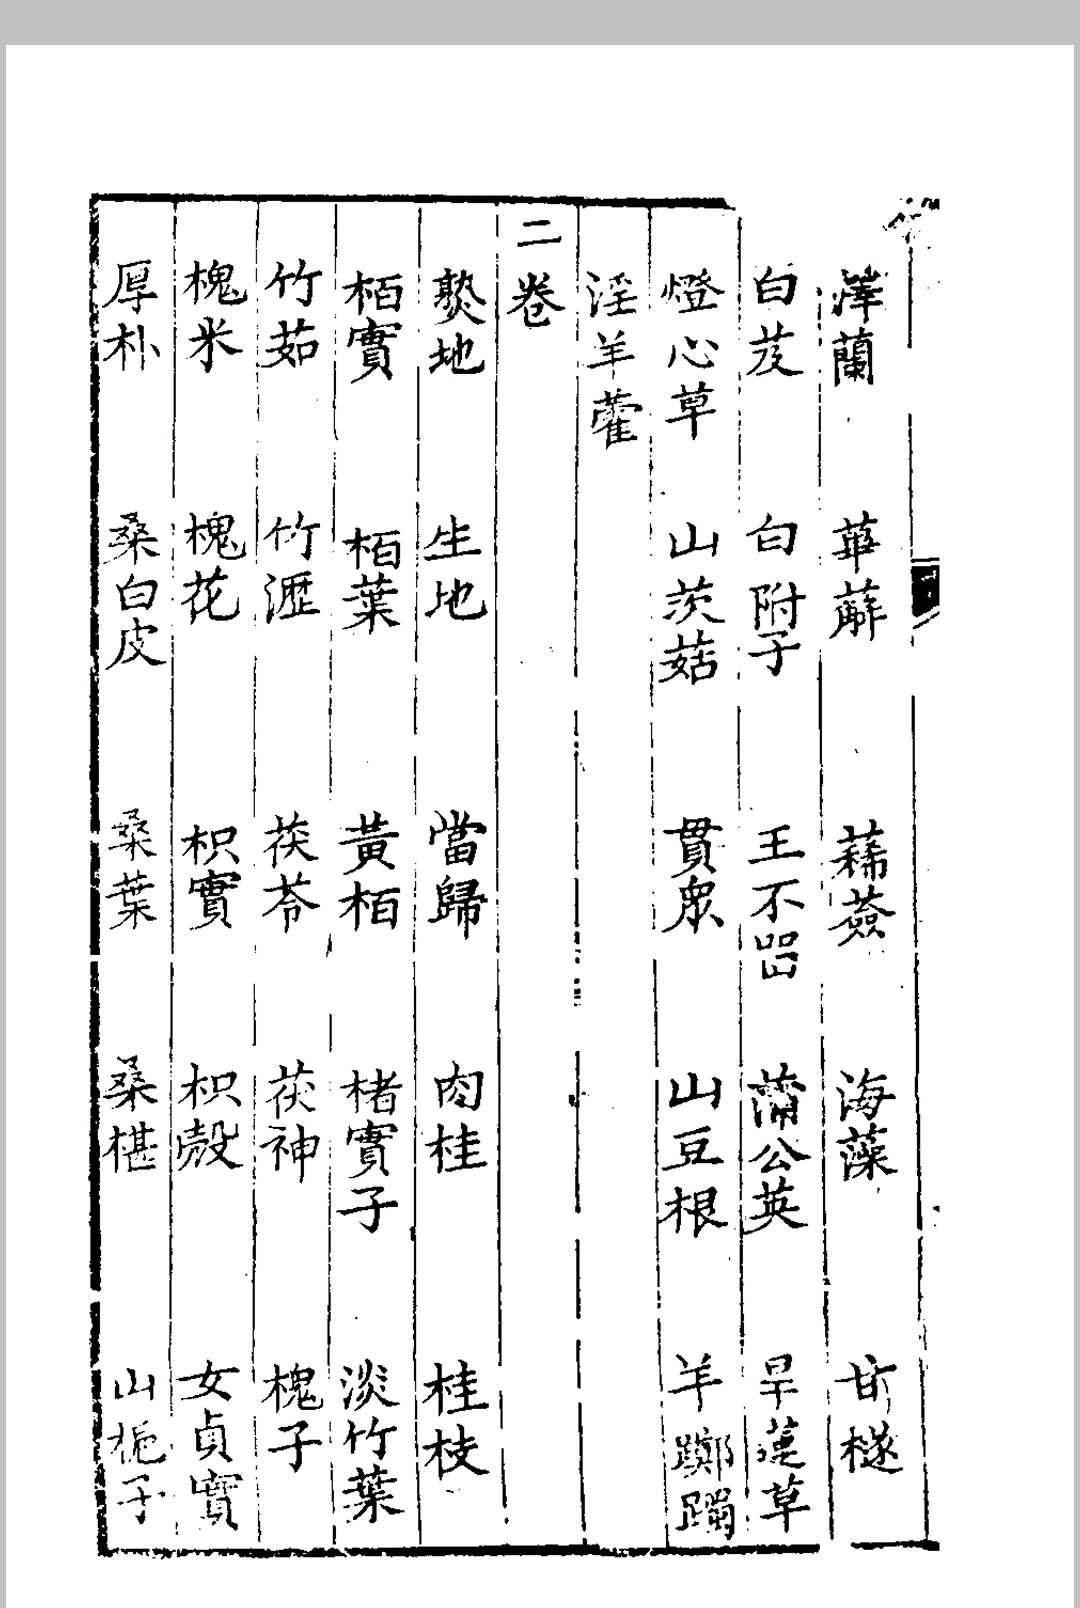 澤蘭 萆薢 豨薟 海藻 甘檖
白芨 白附子 王不畱 蒲公英 旱蓮草
燈心草 山茨菇 貫眾 山豆根 羊躑躅
淫羊藿
二卷
熟地 生地 當歸 肉桂 桂枝
栢實 栢葉 黃栢 楮實子 淡竹葉
竹茹 竹瀝 茯苓 茯神 槐子
槐米 槐花 枳實 枳殼 女貞實
厚朴 桑白皮 桑葉 桑椹 山梔子